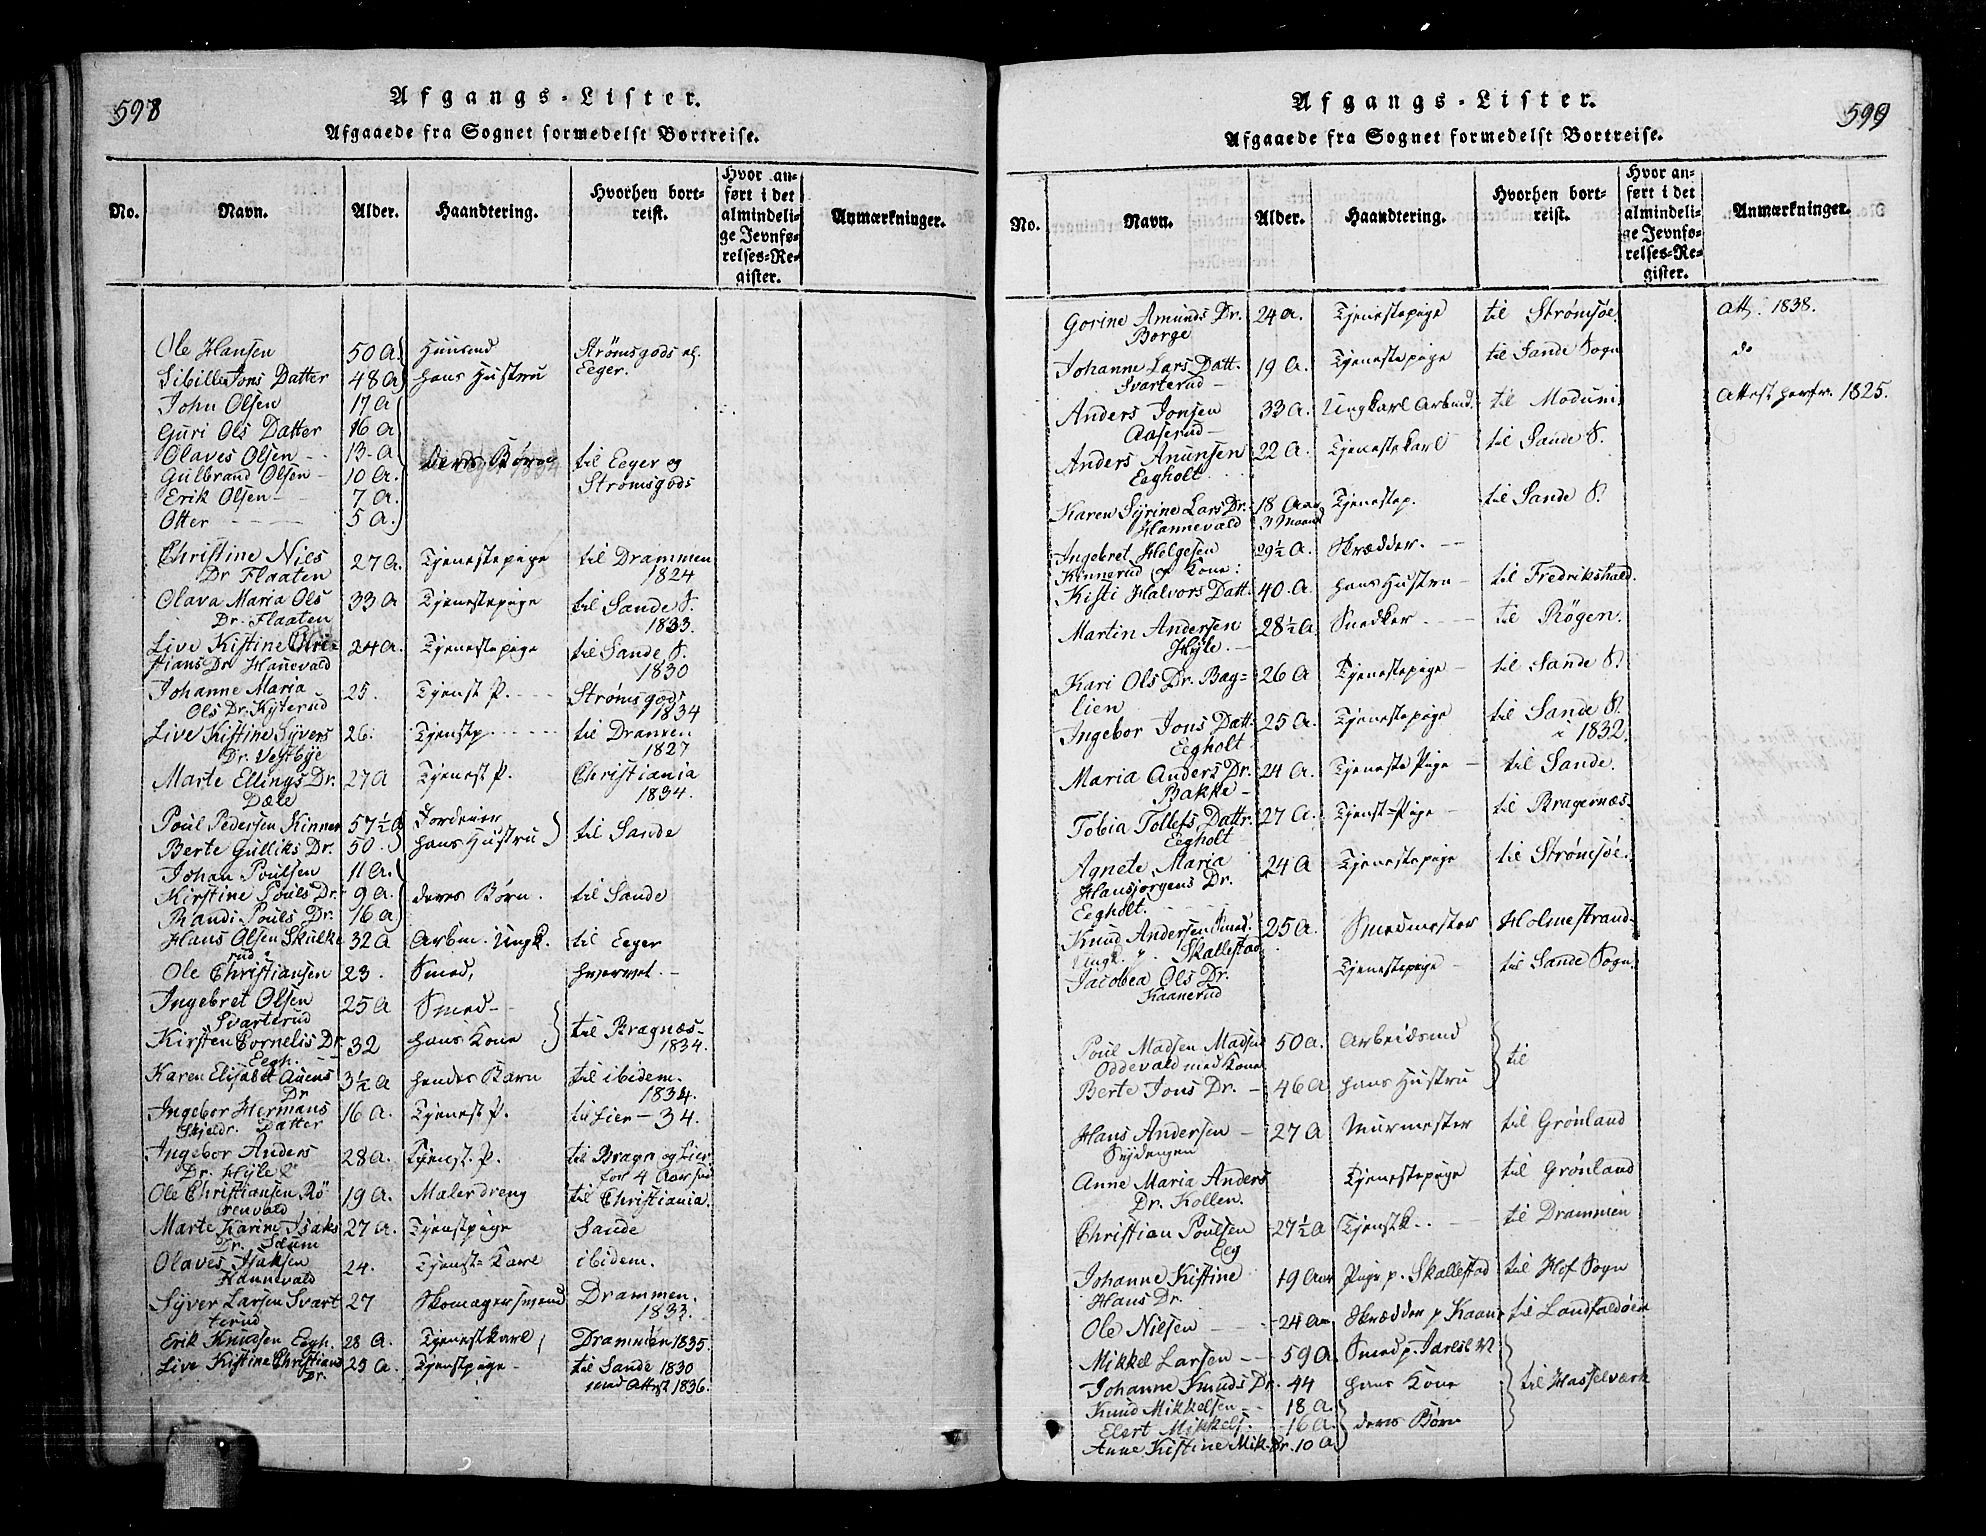 598
Afgangs-Lister.
Afgaaede fra Sognet formedelst Bortreise.
No. Navn. Alder. Haandtering. Hvorhen bortreist. Hvor anført i det almindelige Jevnførelses-Register. Anmærkninger.
Ole Hansen 50 A Huusmd Strømsgods og
Sibille Jons Datter 48 A hans Hustru Eeger.
John Olsen 17 A
Guri Ols Datter 16 A
Olaves Olsen - 13 A deres Børn til Eeger og
Gulbrand Olsen - 10 A. Strømsgods
Erik Olsen - 7 A.
Otter - - - 5 A.
Christine Nies 27 A. Tjenestepige til Drammen
Dr Flaaten 1824
Olava Maria Ols 33 A Tjenestepige til Sande S.
Dr. Flaaten 1833.
Live Kistine Chri= 24 A. Tjenestepige til Sande S.
stians Dr Hanevald 1830
Johanne Maria 25. Tjenest P. Strømsgods
Ols Dr. Kyterud 1834
Live Kistine Syvers 26. Tjenstp. til Dramen
Dr. Vestbye 1827
Marte Ellings Dr. 27 A Tjenest P. Christiania
Dæle 1834.
Poul Pedersen Kinner 57½ A Jordeier til Sande
Berte Gulliks Dr. 50. hans Hustru
Johan Poulsen 11 A.
Kirstine Pouls Dr. 9 A. deres Børn. til Sande
Randi Pouls Dr. 16 A
Hans Olsen Skulke 32 A Arbm. Ungk. til Eeger
rud
Ole Christiansen 23. Smed,
Ingebret Olsen 25 A Smed-
Svarterud til Bragnæs-
Kirsten Cornelis Dr 32 hans Kone 1834.
Eegh.
Karen Elisabet Auens 3½ A hendes Barn til ibidem.
Dr 1834.
Ingebor Hermans 16 A. Tjenest P. til Lier - 34.
Skjeldr. Datter
Ingebor Anders 28 A. Tjenst. P. til Bragn og Lier
Dr. Hyle for 4 Aar
Ole Christiansen Rö 19 A. Malerdreng til Christiania.
renvald
Marte Karine Isaks 27 A. Tjenstpige Sande
Dr. Solum
Olaves Isaksen 24. Tjenst= Karl ibidem.
Hannevald
Syver Larsen Svart 27 Skomagersvend Drammen.
terud 1833.
Erik Knudsen Eegh. 28 A. Tjenestkarl Drammen 1835
Live Kistine Christians 25 A. Tjenstpige - til Sande 1830
Dr. med Attest 1836.
599
Afgangs-Lister.
Afgaaede fra Sognet formedelst Bortreise.
No. Navn. Alder. Haandtering. Hvorhen bortreist. Hvor anført i det almindelige Jevnførelses-Register. Anmærkninger.
Gorine Amunds Dr. 24 A. Tjenestepige til Strømsøe. Att. 1838.
Borge
Johanne Lars Datt. 19 A. Tjenestepige til Sande Sogn do
Svarterud -
Anders Jonsen 33 A. Ungkarl Arbmd. til Modum Attest herfr. 1825.
Aaserud -
Anders Anunsen 22 A. Tjenestekarl til Sande S.
Eegholt
Karen Syrine Lars Dr. 18 Aar Tjenestep. til Sande S.
Hannevald 3 Maan
Ingebret Helgesen 29½ A. Skrædder. -
Kinnerud og Kone:
Kisti Halvors Datt. 40. A. hans Hustru - til Fredrikshald.
Martin Andersen 28½ A. Snedker - til Røgen.
Hyle. -
Kari Ols Dr. Bag= 26 A Tjenestepige - til Sande S.
lien
Ingebor Jons Datt. 25 A. Tjenestepige til Sande S.
Eegholt i 1832.
Maria Anders Dr. 24 A. Tjeneste Pige - til Sande.
Bakke -
Tobia Tollefs Dattr. 27 A. Tjenst=Pige - til Bragernæs-
Eegholt
Agnete Maria 24 A Tjenestepige til Strømsøe.
Hansjorgens Dr.
Eegholt.
Knud Andersen Smed. 25 A. Smedmester Holmestrand-
Ungk. Skallestad
Jacobea Ols Dr. Tjenestepige - til Sande Sogn.
Kaanerud
Poul Madsen Madsen 50 A. Arbeidsmd
Oddevald med Kone til
Berte Jons Dr. - 46 A hans Hustru
Hans Andersen - 27 A Murmester til Grønland
Anne Maria Anders Tjenestepige til Grønland
Dr. Kollen.
Christian Poulsen 27½ A Tjenstk. til Drammen
Eeg
Johanne Kistine 19 Aar Pige p. Skallestad til Hof Sogn
Hans Dr.
Ole Nilsen 24 Aar Skrædder p Kaane til Landfaldøen
Mikkel Larsen 59 A. Smed p. Jarlsb V
Johanne Knuds Dr. 44 hans Kone til Hasselværk
Knud Mikkelsen 18 A.
Elert Mikkels. 16 A. deres Børn
Anne Kistine Mik. Dr. 10 A